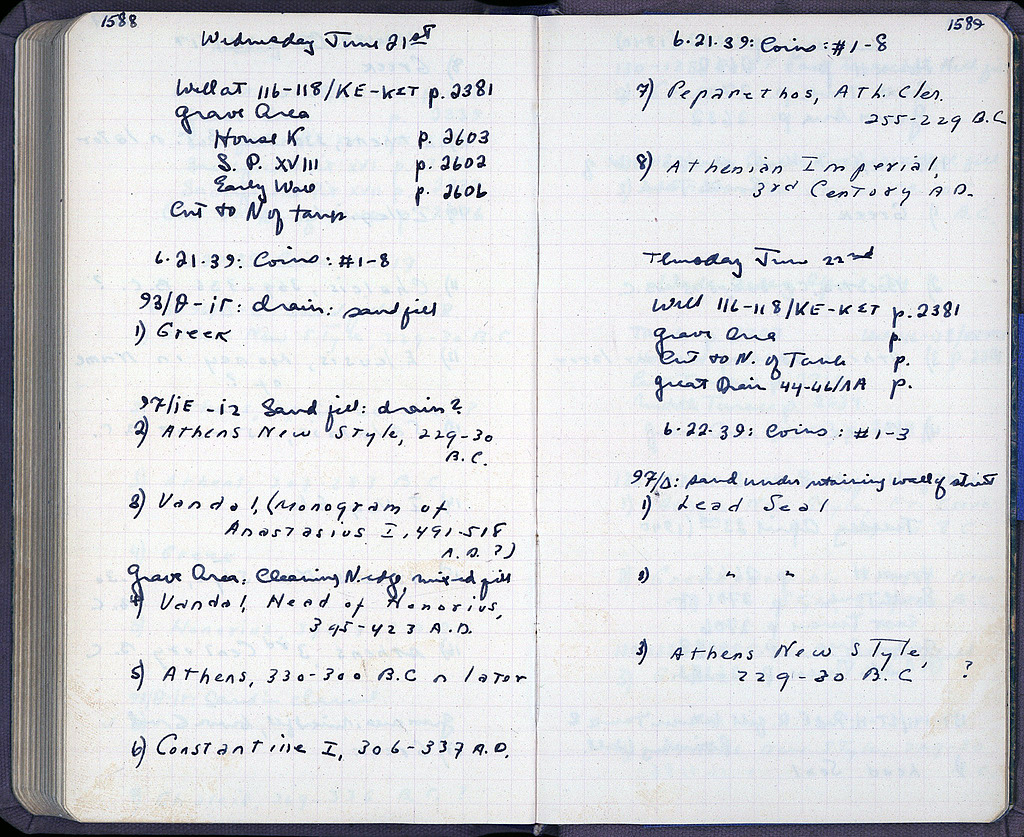 1588
Wednesday June 21st
Well at 116-118/ΚΕ-ΚΣΤ p. 2381
Grave Area
House K p. 2603
S. P. XVIII p. 2602
Early Wall p. 2606
Cut to N of tank
6.21.39: Coins: #1-8
93/Θ-ΙΓ: drain: sand fill
1) Greek
97/ΙΕ - ΙΖ Sand fill: drain?
2) Athens New Style, 229-30
B.C.
3) Vandal, (Monogram of
Anastasius I, 491-518
A.D. ?)
Grave Area: Cleaning N. edge mixed fill
4) Vandal, Head of Honorius,
395-423 A.D.
5) Athens, 330-300 B.C or later
6) Constantine I, 306-337 A.D.
1589
6.21.39: Coins: #1-8
7) Peparethos, Ath. Cler.
255-229 B.C
8) Athenian Imperial,
3rd Century A.D.
Thursday June 22nd
Well 116-118/ΚΕ-ΚΣΤ p. 2381
Grave Area p.
Cut to N. of Tank p.
Great Drain 44-46/ΛΑ p.
6.22.39: Coins: #1-3
97/Δ: sand under retaining wall of street
1) Lead Seal
2) " "
3) Athens New Style,
229-30 B.C ?